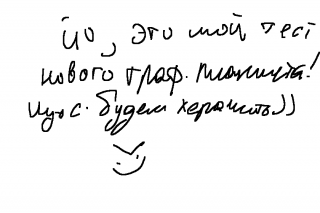 йо, это мой тест
нового граф. планшета!
будем херачить))